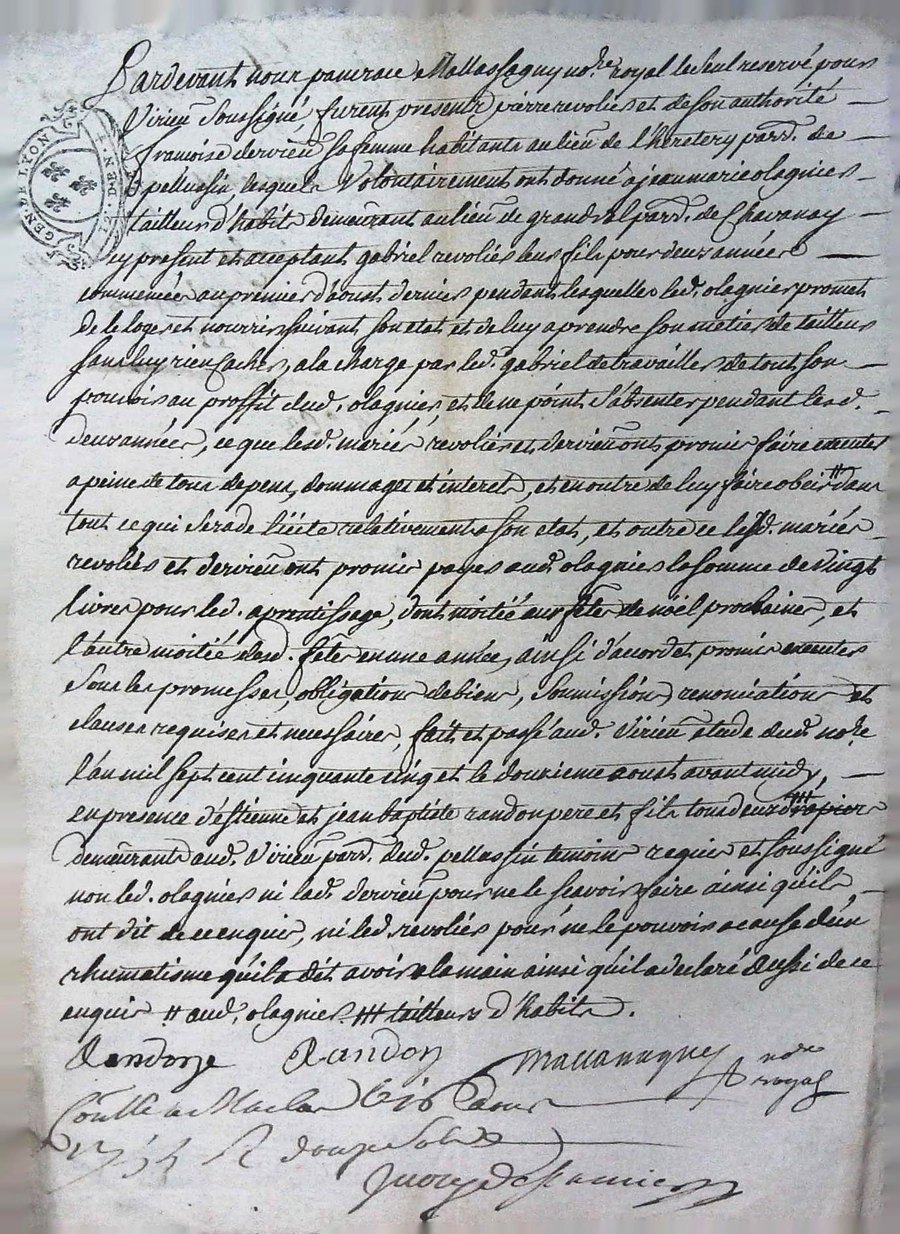 GEN. DE LYON
DEN.
Pardevant nour pancrace Mallassagny no.re royal le seul reservé pour
Virieu soussigné, furent presentz pierre revolier et de son authorité
francoise dervieu sa femme habitants au lieu de l'heretery parr. de
pellussin, lesquels volontairement ont donné a jean marie olagnier
tailleur d'habits demeurant au lieu de grand val parr. de Chavanay
icy present et acceptant gabriel revolier leur fils pour deux années
commencées au premier d'aoust dernier pendant lesquelles led. olagnier promet
de le loger et nourrir suivant son etat et de luy aprendre son metier de tailleur
sans luy rien cacher, a la charge par led. gabriel de travailler de tout son
pouvoir au proffit dud. olagnier, et de ne point s'absenter pendant lesd.
deux années, ce que lesd. mariés revolier et dervieu ont promis faire executer
a peine de tous depens, dommages et interets, et en outre de luy faire obeir # dans
tout ce qui sera de licite relativement a son etat, et outre ce lesd. mariés
revolier et dervieu ont promis payer aud. olagnier la somme de vingt
livres pour led. aprentissage, dont moitié aux fêtes de noël prochaines, et
l'autre moitié auxd. fêtes en une année, ainsi d'acord et promis executer
sous les promesses, obligations de biens, soumissions, renonciations et
clauses requises et necessaires, fait et passé aud. Virieu etude dud. no.re
l'an mil sept cent cinquante cinq et le douzieme aoust avant midy,
en presence d'estienne et jean baptiste randon pere et fils ###
demeurants aud. Virieu parr. dud. pellussin temoins requis et soussigné
non led. olagnier ni lad. dervieu pour ne le scavoir faire ainsi qu'ils
ont dit de ce enquis, ni led. revolier pour ne le pouvoir a cause d'un
rhumatisme qu'il a dit avoir a la main ainsi qu'il a declaré aussi de ce
enquis # aud. olagnier ### tailleurs d'habits.
Randon Randon Mallassagny
no.re
royal
Conlle a Maclas le 16 aoust
1755 R douze sols